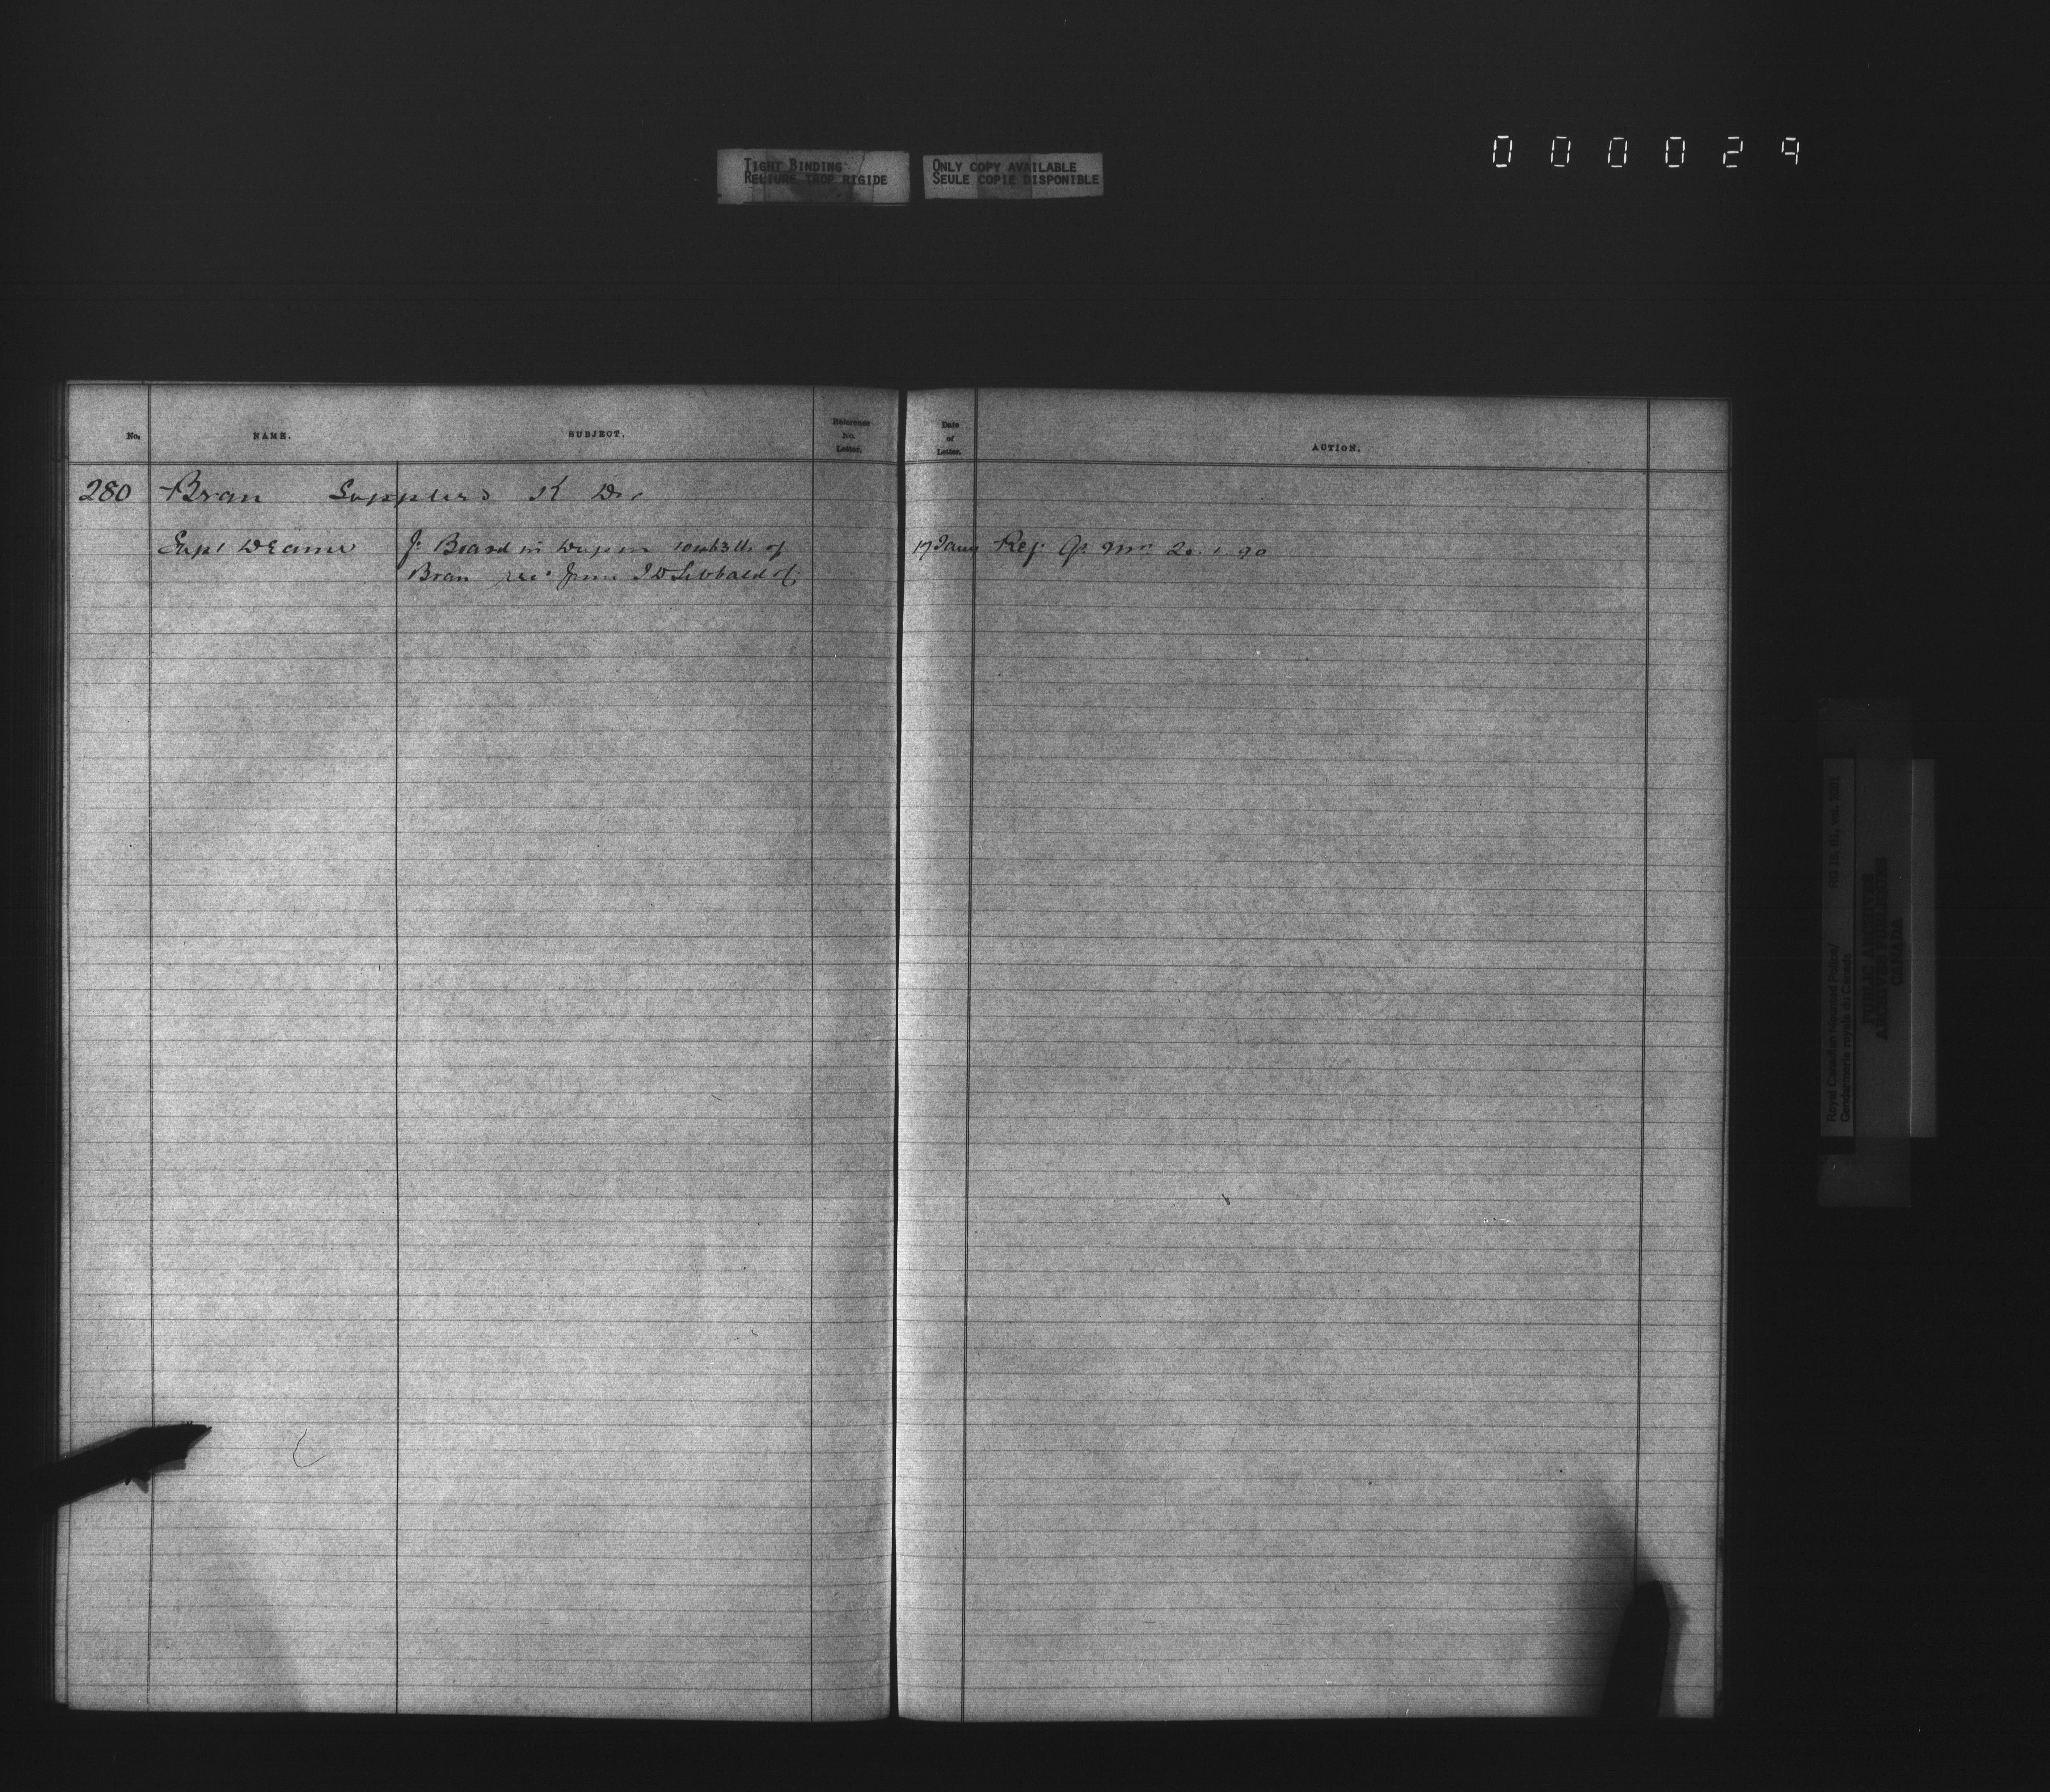 TIGHT BINDING
RELIURE TROP RIGIDE
ONLY COPY AVAILABLE
SEULE COPIE DISPONIBLE
000029
No. NAME. SUBJECT. Reference No. Letter. Date of Letter. ACTION.
280 Bran Supplied K Div
Supt Deane Board in 10663 lbs of 17 Jany Ref. Qr Mr. 20.1.90
Bran rec'd from J D Sibbald of
Royal Canadian Mounted Police/
Gendarmerie royale du Canada
PUBLIC ARCHIVES
ARCHIVES PUBLIQUES
CANADA